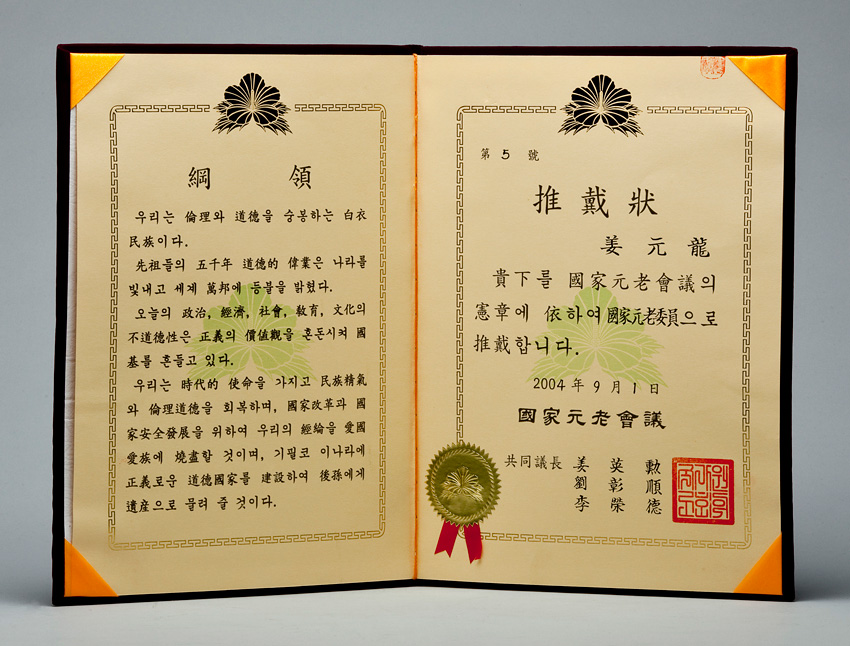 綱領
우리는 倫理와 道德을 숭봉하는 白衣
民族이다.
先祖들의 五千年 道德的 偉業은 나라를
빛내고 세계 萬邦에 등불을 밝혔다.
오늘의 政治, 經濟, 社會, 敎育, 文化의
不道德性은 正義의 價値觀을 혼돈시켜 國
基를 흔들고 있다.
우리는 時代的 使命을 가지고 民族精氣
와 倫理道德을 회복하며, 國家改革과 國
家安全發展을 위하여 우리의 經綸을 愛國
愛族에 燒盡할 것이며, 기필코 이나라에
正義로운 道德國家를 建設하여 後孫에게
遺産으로 물려 줄 것이다.
第 5 號
推戴狀
姜元龍
貴下를 國家元老會議의
憲章에 依하여 國家元老委員으로
推戴합니다.
2004年 9月 1日
國家元老會議
共同議長 姜英勳
劉彰順
李榮德